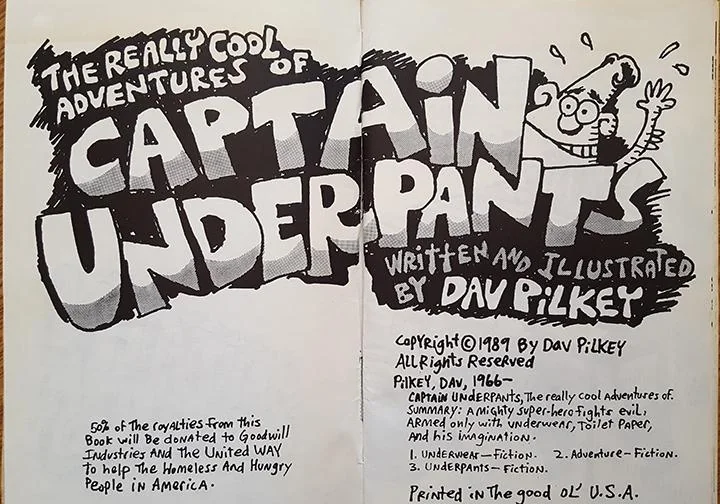 THE REALLY COOL
ADVENTURES OF
CAPTAiN
UNDERPANTS
WRittEN AND iLLUSTRATED
BY DAV PiLKEY
Copyright © 1989 By Dav PiLKEY
ALL Rights Reserved
PiLKEY, DAV, 1966-
CAPTAIN UNDERPANTS, The really cool Adventures of.
SUMMARY: A mighty super-hero fights evil,
ARMED only with underwear, Toilet Paper,
and his imagination.
1. UNDERWEAR—Fiction. 2. Adventure-Fiction.
3. UNDERPANTS-FICTION.
Printed in The good OL' U.S.A.
50% of The royalties from this
Book will Be donated to Goodwill
Industries And The United WAY
to help The Homeless And Hungry
People in America.